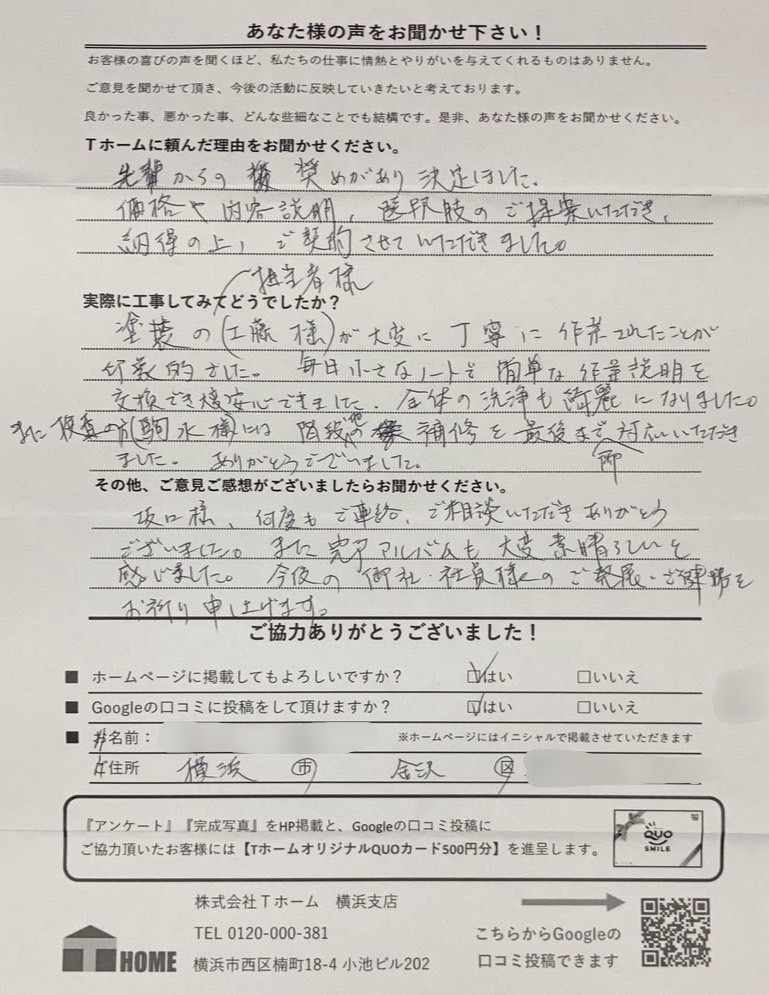 あなた様の声をお聞かせ下さい！
お客様の喜びの声を聞くほど、私たちの仕事に情熱とやりがいを与えてくれるものはありません。
ご意見を聞かせて頂き、今後の活動に反映していきたいと考えております。
良かった事、悪かった事、どんな些細なことでも結構です。是非、あなた様の声をお聞かせください。
Tホームに頼んだ理由をお聞かせください。
先輩からの奨めがあり決定しました。
価格や内容説明、選択肢のご提案いただき、
納得の上、ご契約させていただきました。
担当者様
実際に工事してみてどうでしたか？
塗装の(工藤様)が大変に丁寧に作業されたことが
印象的でした。毎日小さなノートを簡単な作業説明を
交換でき大変安心できました。全体の洗浄も綺麗になりました。
また(駒水様)には階段の補修を最後まで御対応いただき
ました。ありがとうございました。
その他、ご意見ご感想がございましたらお聞かせください。
坂口様、何度もご連絡、ご相談いただきありがとう
ございました。また完了アルバムも大変素晴らしいと
感じました。今後の御社・社員様のご発展・ご健勝を
お祈り申し上げます。
ご協力ありがとうございました！
■ ホームページに掲載してもよろしいですか？ はい □いいえ
■ Googleの口コミに投稿をして頂けますか？ はい □いいえ
■ お名前： ※ホームページにはイニシャルで掲載させていただきます
ご住所 横浜 市 金沢 区
『アンケート』『完成写真』をHP掲載と、Googleの口コミ投稿に
ご協力頂いたお客様には【TホームオリジナルQUOカード500円分】を進呈します。
QUO
SMILE
株式会社Tホーム 横浜支店
TEL 0120-000-381
横浜市西区楠町18-4 小池ビル202
T HOME
こちらからGoogleの
口コミ投稿できます